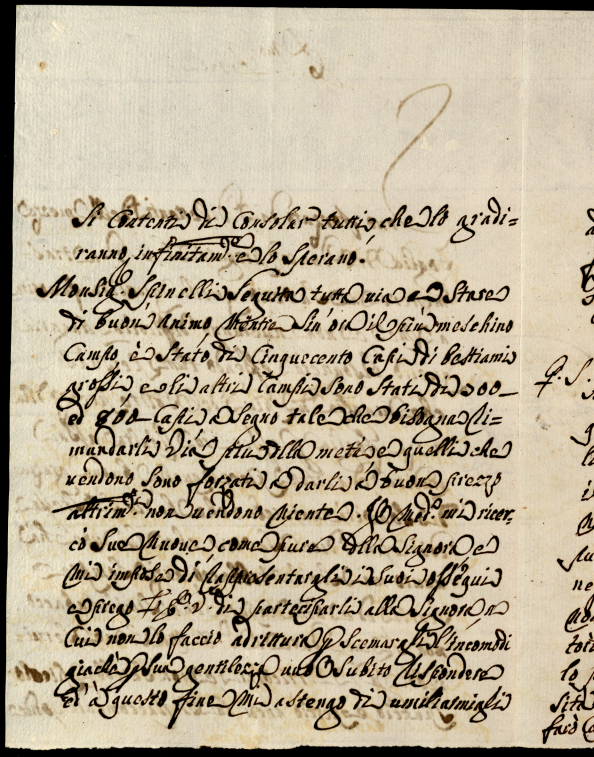 si contenti di consolar tutti, che lo gradi=
ranno infinitam.e e lo sperano.
Monsig.r Spinelli seguita tutta via a stare
di buon animo mentre sin'ora il più meschino
Campo è stato di Cinquecento Capi di bestiami
grossi, e li altri Campi sono stati di 700
ed 800 Capi a segno tale che bisogna ri=
mandarli via più della metà e quelli che
vendono sono forzati a darli a buon prezzo
altrim.ti non vendono niente. Il Med.o mi ricer=
cò sue nuove come pure della Signora e
mi impose di rappresentargli i suoi ossequi
e prego di parteciparli alla Signora a
cui non lo faccio a drittura p scemargli l'incomodi
giachè p sua gentilezza vuol subito rispondere
ed a questo fine mi astengo di umiliarmigli
P. S.